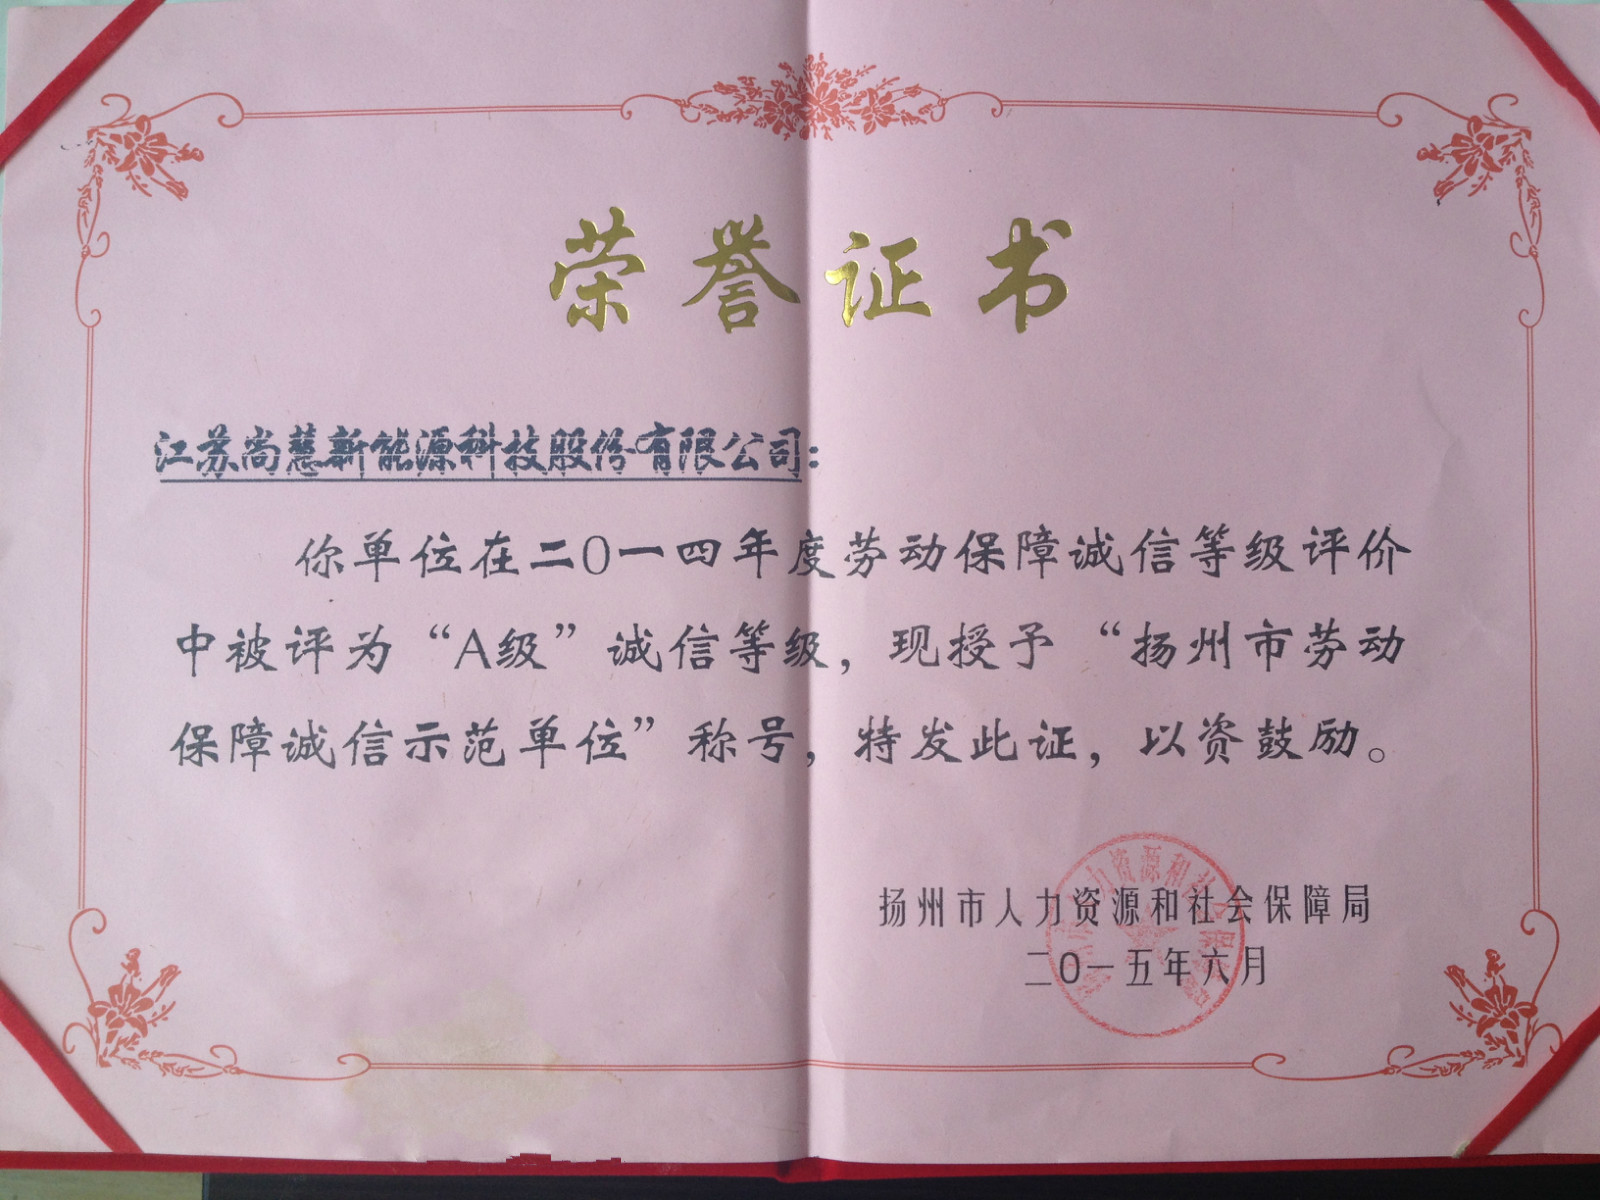 荣誉证书
江苏尚慧新能源科技股份有限公司：
你单位在二〇一四年度劳动保障诚信等级评价
中被评为“A级”诚信等级，现授予“扬州市劳动
保障诚信示范单位”称号，特发此证，以资鼓励。
扬州市人力资源和社会保障局
二〇一五年六月